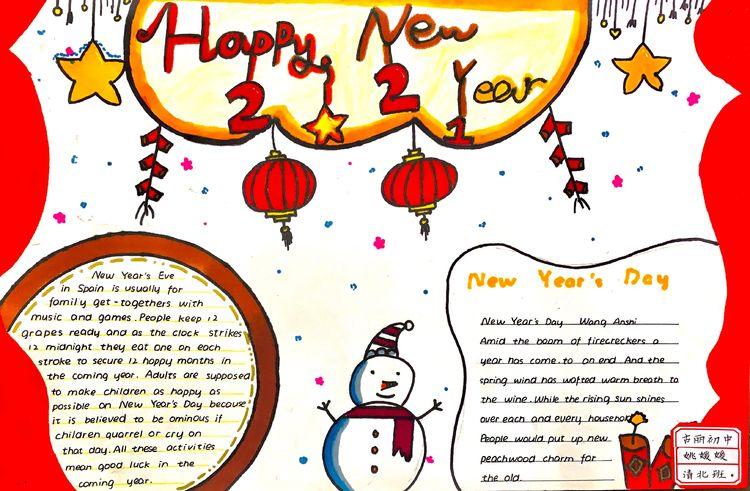 Happy New
2 2 Year
1
New Year's Eve
in Spain is usually for
family get-togethers with
music and games. People keep 12
grapes ready and as the clock strikes
12 midnight they eat one on each
stroke to secure 12 happy months in
the coming year. Adults are supposed
to make children as happy as
possible on New Year's Day because
it is believed to be ominous if
children quarrel or cry on
that day. All these activities
mean good luck in the
coming year.
New Year's Day
New Year's Day Wang Anshi
Amid the boom of firecreckers a
year has come to an end And the
spring wind has wafted warm breath to
the wine While the rising sun shines
over each and every household
People would put up new
peachwood charm for
the old.
古丽初中
姚媛媛
清北班.